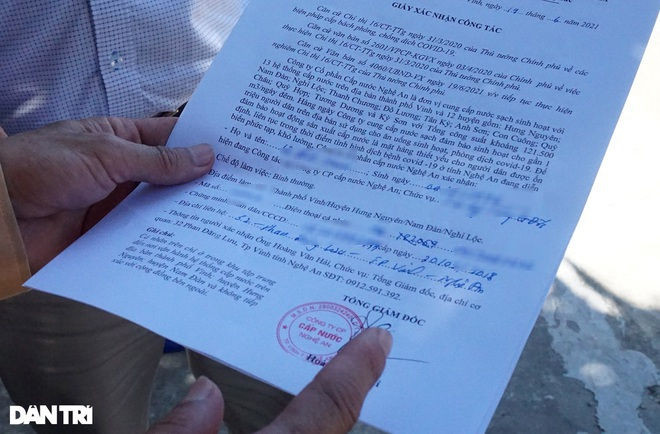 Vinh, ngày 19 tháng 6 năm 2021
GIẤY XÁC NHẬN CÔNG TÁC
Căn cứ Chỉ thị 16/CT-TTg ngày 31/3/2020 của Thủ tướng Chính phủ về các
biện pháp cấp bách phòng, chống dịch COVID-19.
Căn cứ văn bản số 2601/VPCP-KGVX ngày 03/4/2020 của Chính phủ về việc
thực hiện Chỉ thị 16/CT-TTg ngày 31/3/2020 của Thủ tướng Chính phủ.
Căn cứ Văn bản số 4060/UBND-VX ngày 19/6/2021 v/v tiếp tục thực hiện
nghiêm Chỉ thị 16/CT-TTg của Thủ tướng Chính phủ.
Công ty Cổ phần Cấp nước Nghệ An là đơn vị cung cấp nước sạch sinh hoạt với
13 hệ thống cấp nước trên địa bàn thành phố Vinh và 12 huyện gồm: Hưng Nguyên;
Nam Đàn; Nghi Lộc; Thanh Chương; Đô Lương; Tân Kỳ; Anh Sơn; Con Cuông; Quỳ
Châu; Quỳ Hợp; Tương Dương và Kỳ Sơn với Tổng công suất khoảng 121.500
m3/ngày đêm. Hàng ngày Công ty cung cấp nước sạch đảm bảo sinh hoạt cho gần 1
triệu người dân trên địa bàn sử dụng cho ăn uống sinh hoạt, phòng dịch covid-19. Để
đảm bảo hoạt động sản xuất cấp nước là mặt hàng thiết yếu cho người dân được ổn
định liên tục trong thời điểm tình hình dịch bệnh covid-19 ở tỉnh Nghệ An đang diễn
biến phức tạp, khó lường, Công ty cổ phần cấp nước Nghệ An xác nhận:
- Họ và tên Sinh ngày
hiện đang Công tác CP cấp nước Nghệ An; Chức vụ
Chế độ làm việc: Bình thường.
Địa điểm làm Thành phố Vinh/Huyện Hưng Nguyên/Nam Đàn/Nghi Lộc.
Mã số Điện thoại cá
CCCD cấp ngày 20.10.2018
- Địa chỉ liên hệ: 32 Phan Đăng Lưu - TP Vinh - Nghệ An
Thông tin người xác nhận Ông Hoàng Văn Hải, Chức vụ: Tổng Giám đốc, địa chỉ cơ
quan: 32 Phan Đăng Lưu, Tp Vinh tỉnh Nghệ An SĐT: 0912.591.392.
Ghi chú:
Cá nhân trên chỉ ở trong khu tập trung
để vận hành hệ thống cấp nước trên
địa bàn thành phố Vinh, huyện Hưng
Nguyên, huyện Nam Đàn và không tiếp
xúc với cộng đồng bên ngoài.
TỔNG GIÁM ĐỐC
CÔNG TY CP
CẤP NƯỚC
NGHỆ AN
DÂN TRÍ